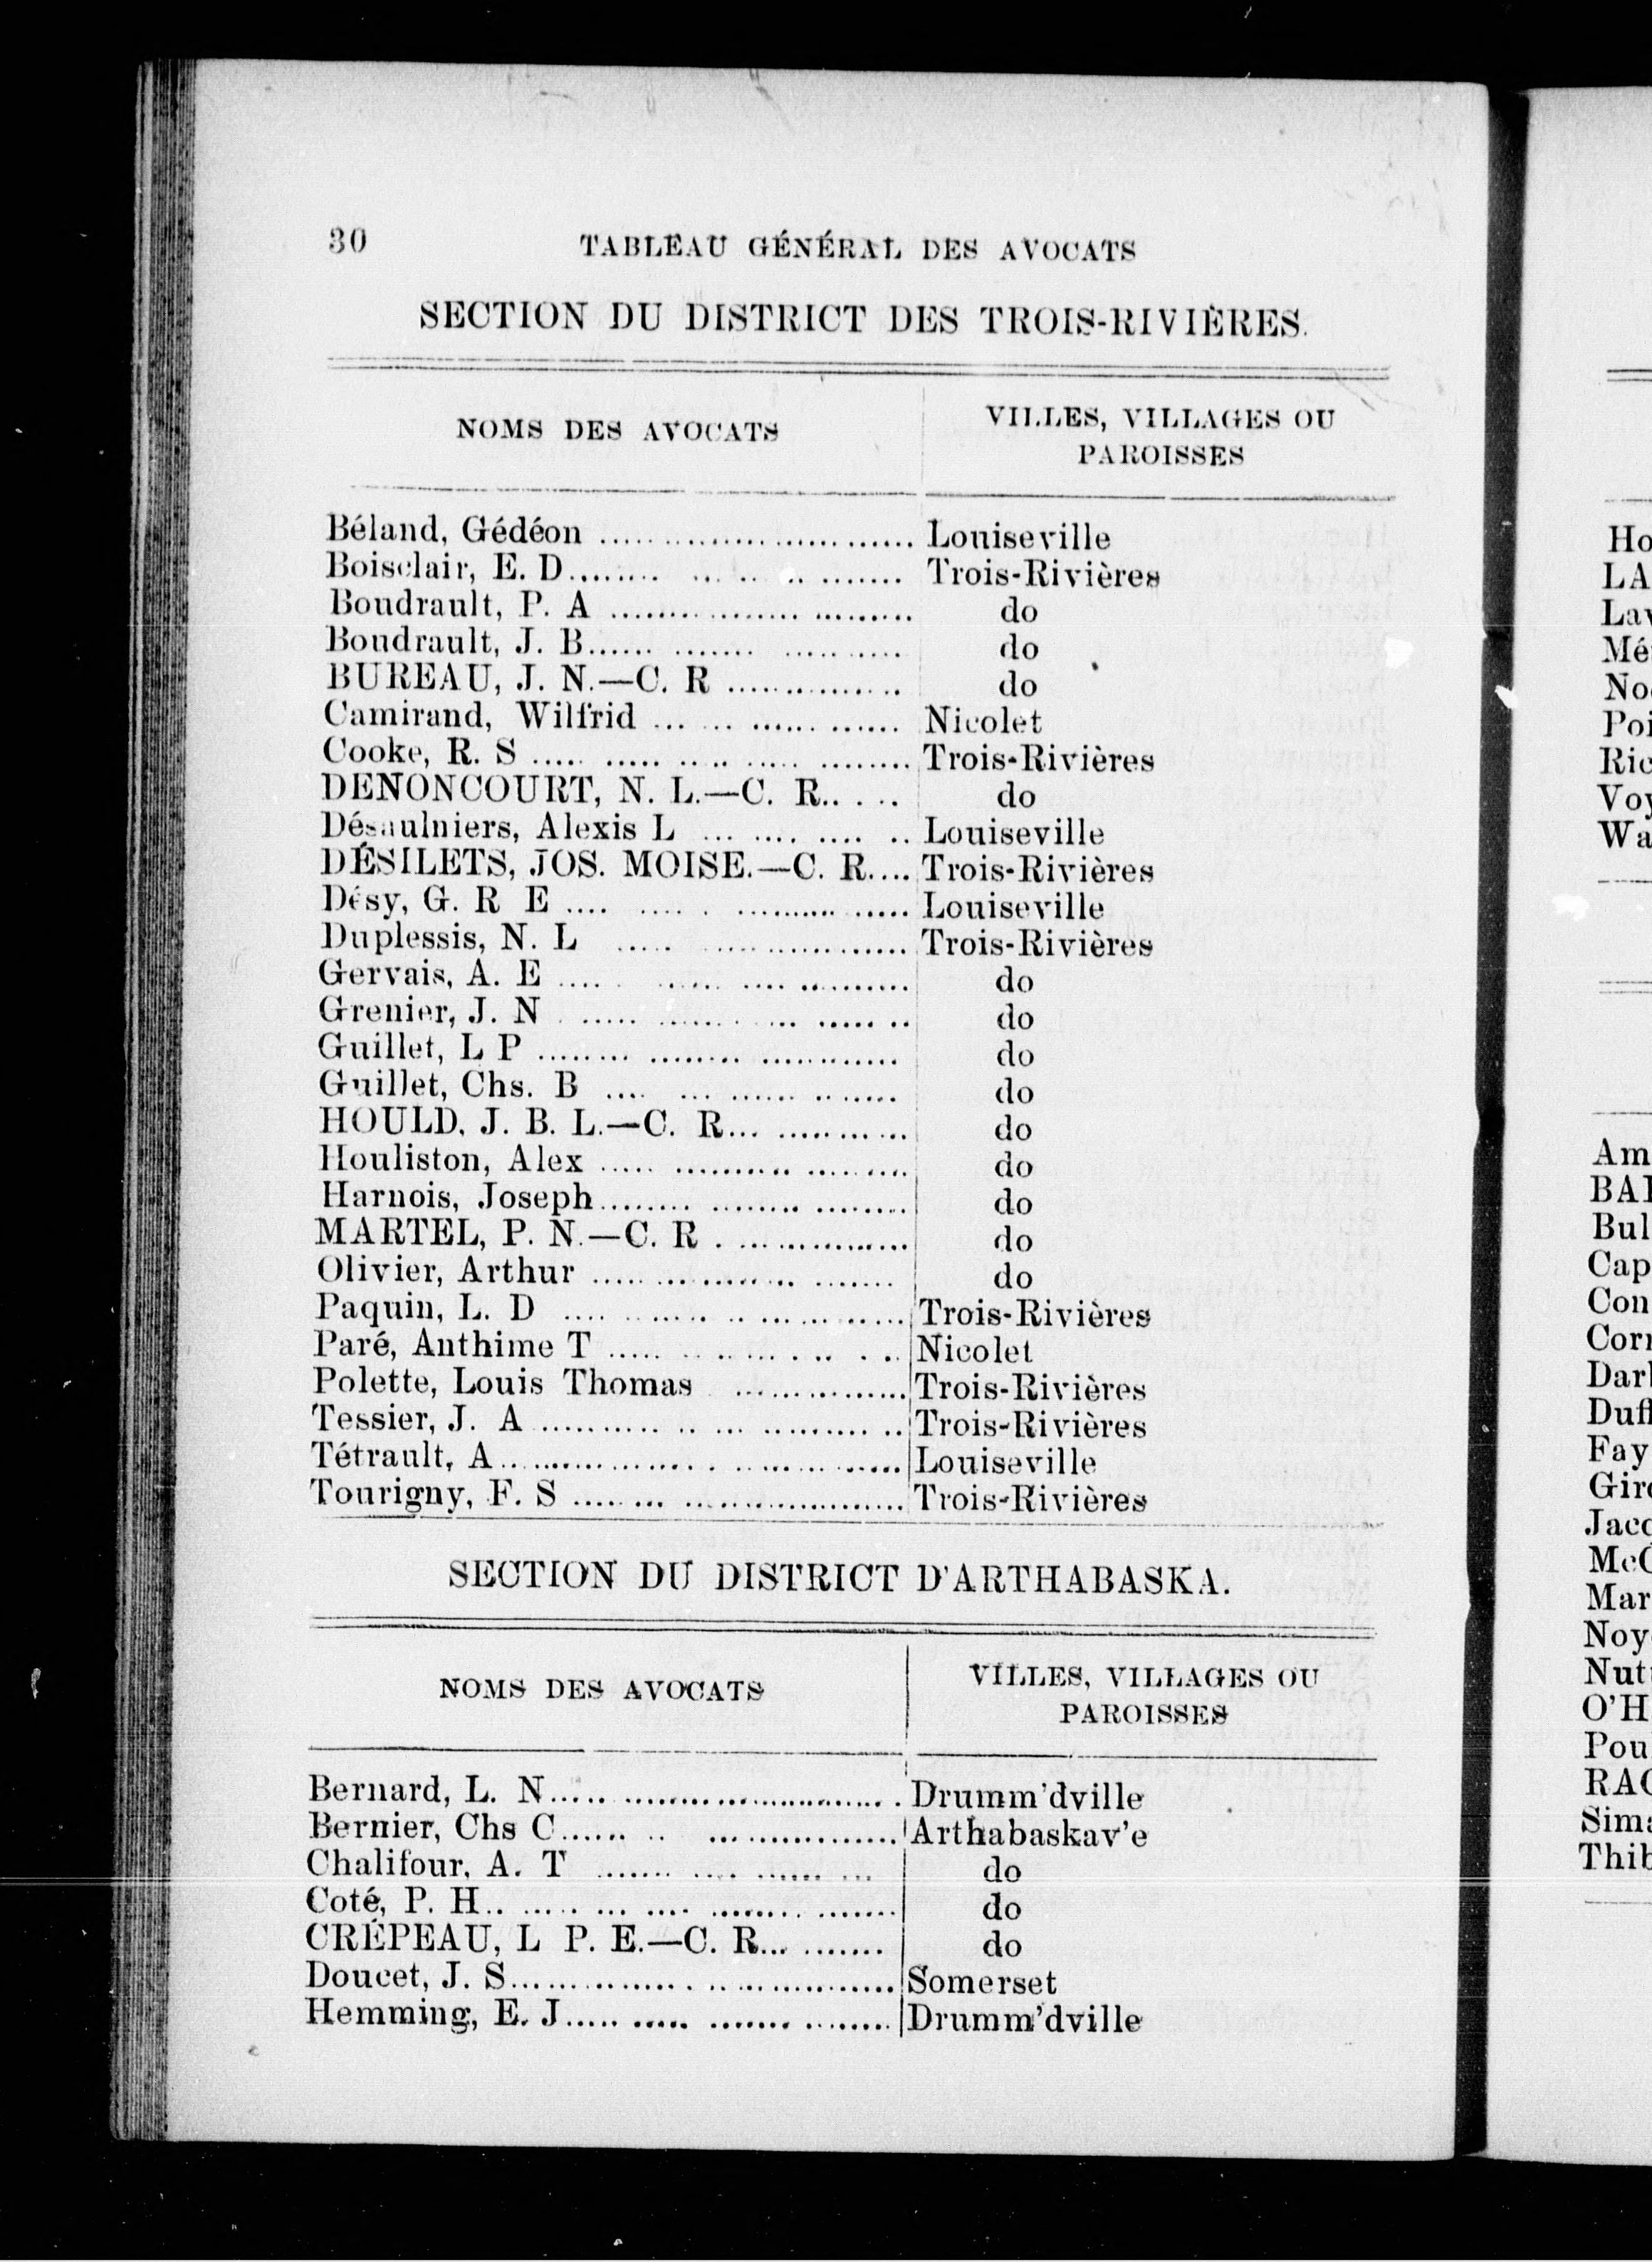 30 TABLEAU GÉNÉRAL DES AVOCATS
SECTION DU DISTRICT DES TROIS-RIVIÈRES.
NOMS DES AVOCATS
VILLES, VILLAGES OU
PAROISSES
Béland, Gédéon .......................... Louiseville
Boisclair, E. D.......................... Trois-Rivières
Boudrault, P. A .......................... do
Boudrault, J. B.......................... do
BUREAU, J. N.—C. R ............... do
Camirand, Wilfrid ..................... Nicolet
Cooke, R. S .......................... Trois-Rivières
DENONCOURT, N. L.—C. R.. . .. do
Désaulniers, Alexis L ................ Louiseville
DÉSILETS, JOS. MOISE.—C. R.... Trois-Rivières
Désy, G. R E .......................... Louiseville
Duplessis, N. L ....................... Trois-Rivières
Gervais, A. E .......................... do
Grenier, J. N .......................... do
Guillet, L P .......................... do
Guillet, Chs. B ....................... do
HOULD, J. B. L.—C. R... ........... do
Houliston, Alex ....................... do
Harnois, Joseph....................... do
MARTEL, P. N.—C. R . ............... do
Olivier, Arthur ....................... do
Paquin, L. D .......................... Trois-Rivières
Paré, Anthime T ...................... Nicolet
Polette, Louis Thomas ............... Trois-Rivières
Tessier, J. A .......................... Trois-Rivières
Tétrault, A............................. Louiseville
Tourigny, F. S ......................... Trois-Rivières
SECTION DU DISTRICT D'ARTHABASKA.
NOMS DES AVOCATS
VILLES, VILLAGES OU
PAROISSES
Bernard, L. N.......................... Drumm'dville
Bernier, Chs C......................... Arthabaskav'e
Chalifour, A. T ....................... do
Coté, P. H.............................. do
CRÉPEAU, L P. E.—C. R... ........ do
Doucet, J. S............................ Somerset
Hemming, E. J......................... Drumm'dville